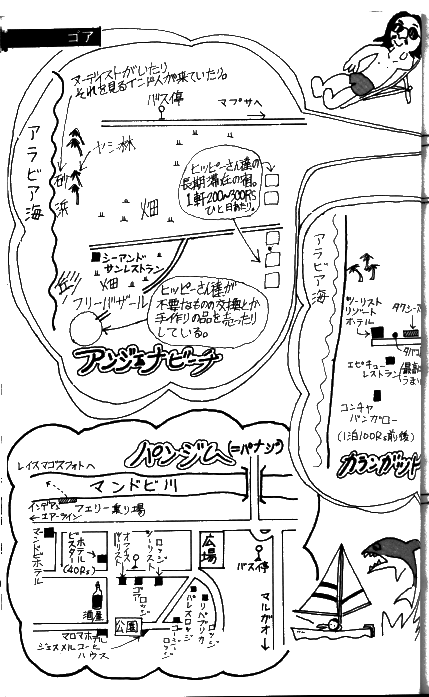 ゴア
ヌーディストがいたり
それを見るインド人が来ていたり。
バス停
マプサへ
アラビア海
ヤシ林
砂浜
畑
ヒッピーさん達の
長期滞在の宿。
1軒200~300RS
ひと月あたり。
シーアンド
サンレストラン
畑
丘
フリーバザール
ヒッピーさん達が
不要なものの交換とか
手作りの品を売ったり
している。
アンジュナビーチ
アラビア海
ツーリスト
リゾート
ホテル
エピキュー
レストラン
コンチャ
バンガロー
(1泊100RS前後)
カラングート
パンジム(=パナジ)
レイスマゴスフォトへ
マンドビ川
インディアン
エアーライン
フェリー乗り場
マンドビホテル
ホテル
(40RS)
ツーリスト
オフィス
ゴア
ロッジ
広場
バス停
マルガオ
酒屋
公園
パレスロッジ
リパブリカ
ロッジ
マロマホテル
ハウス